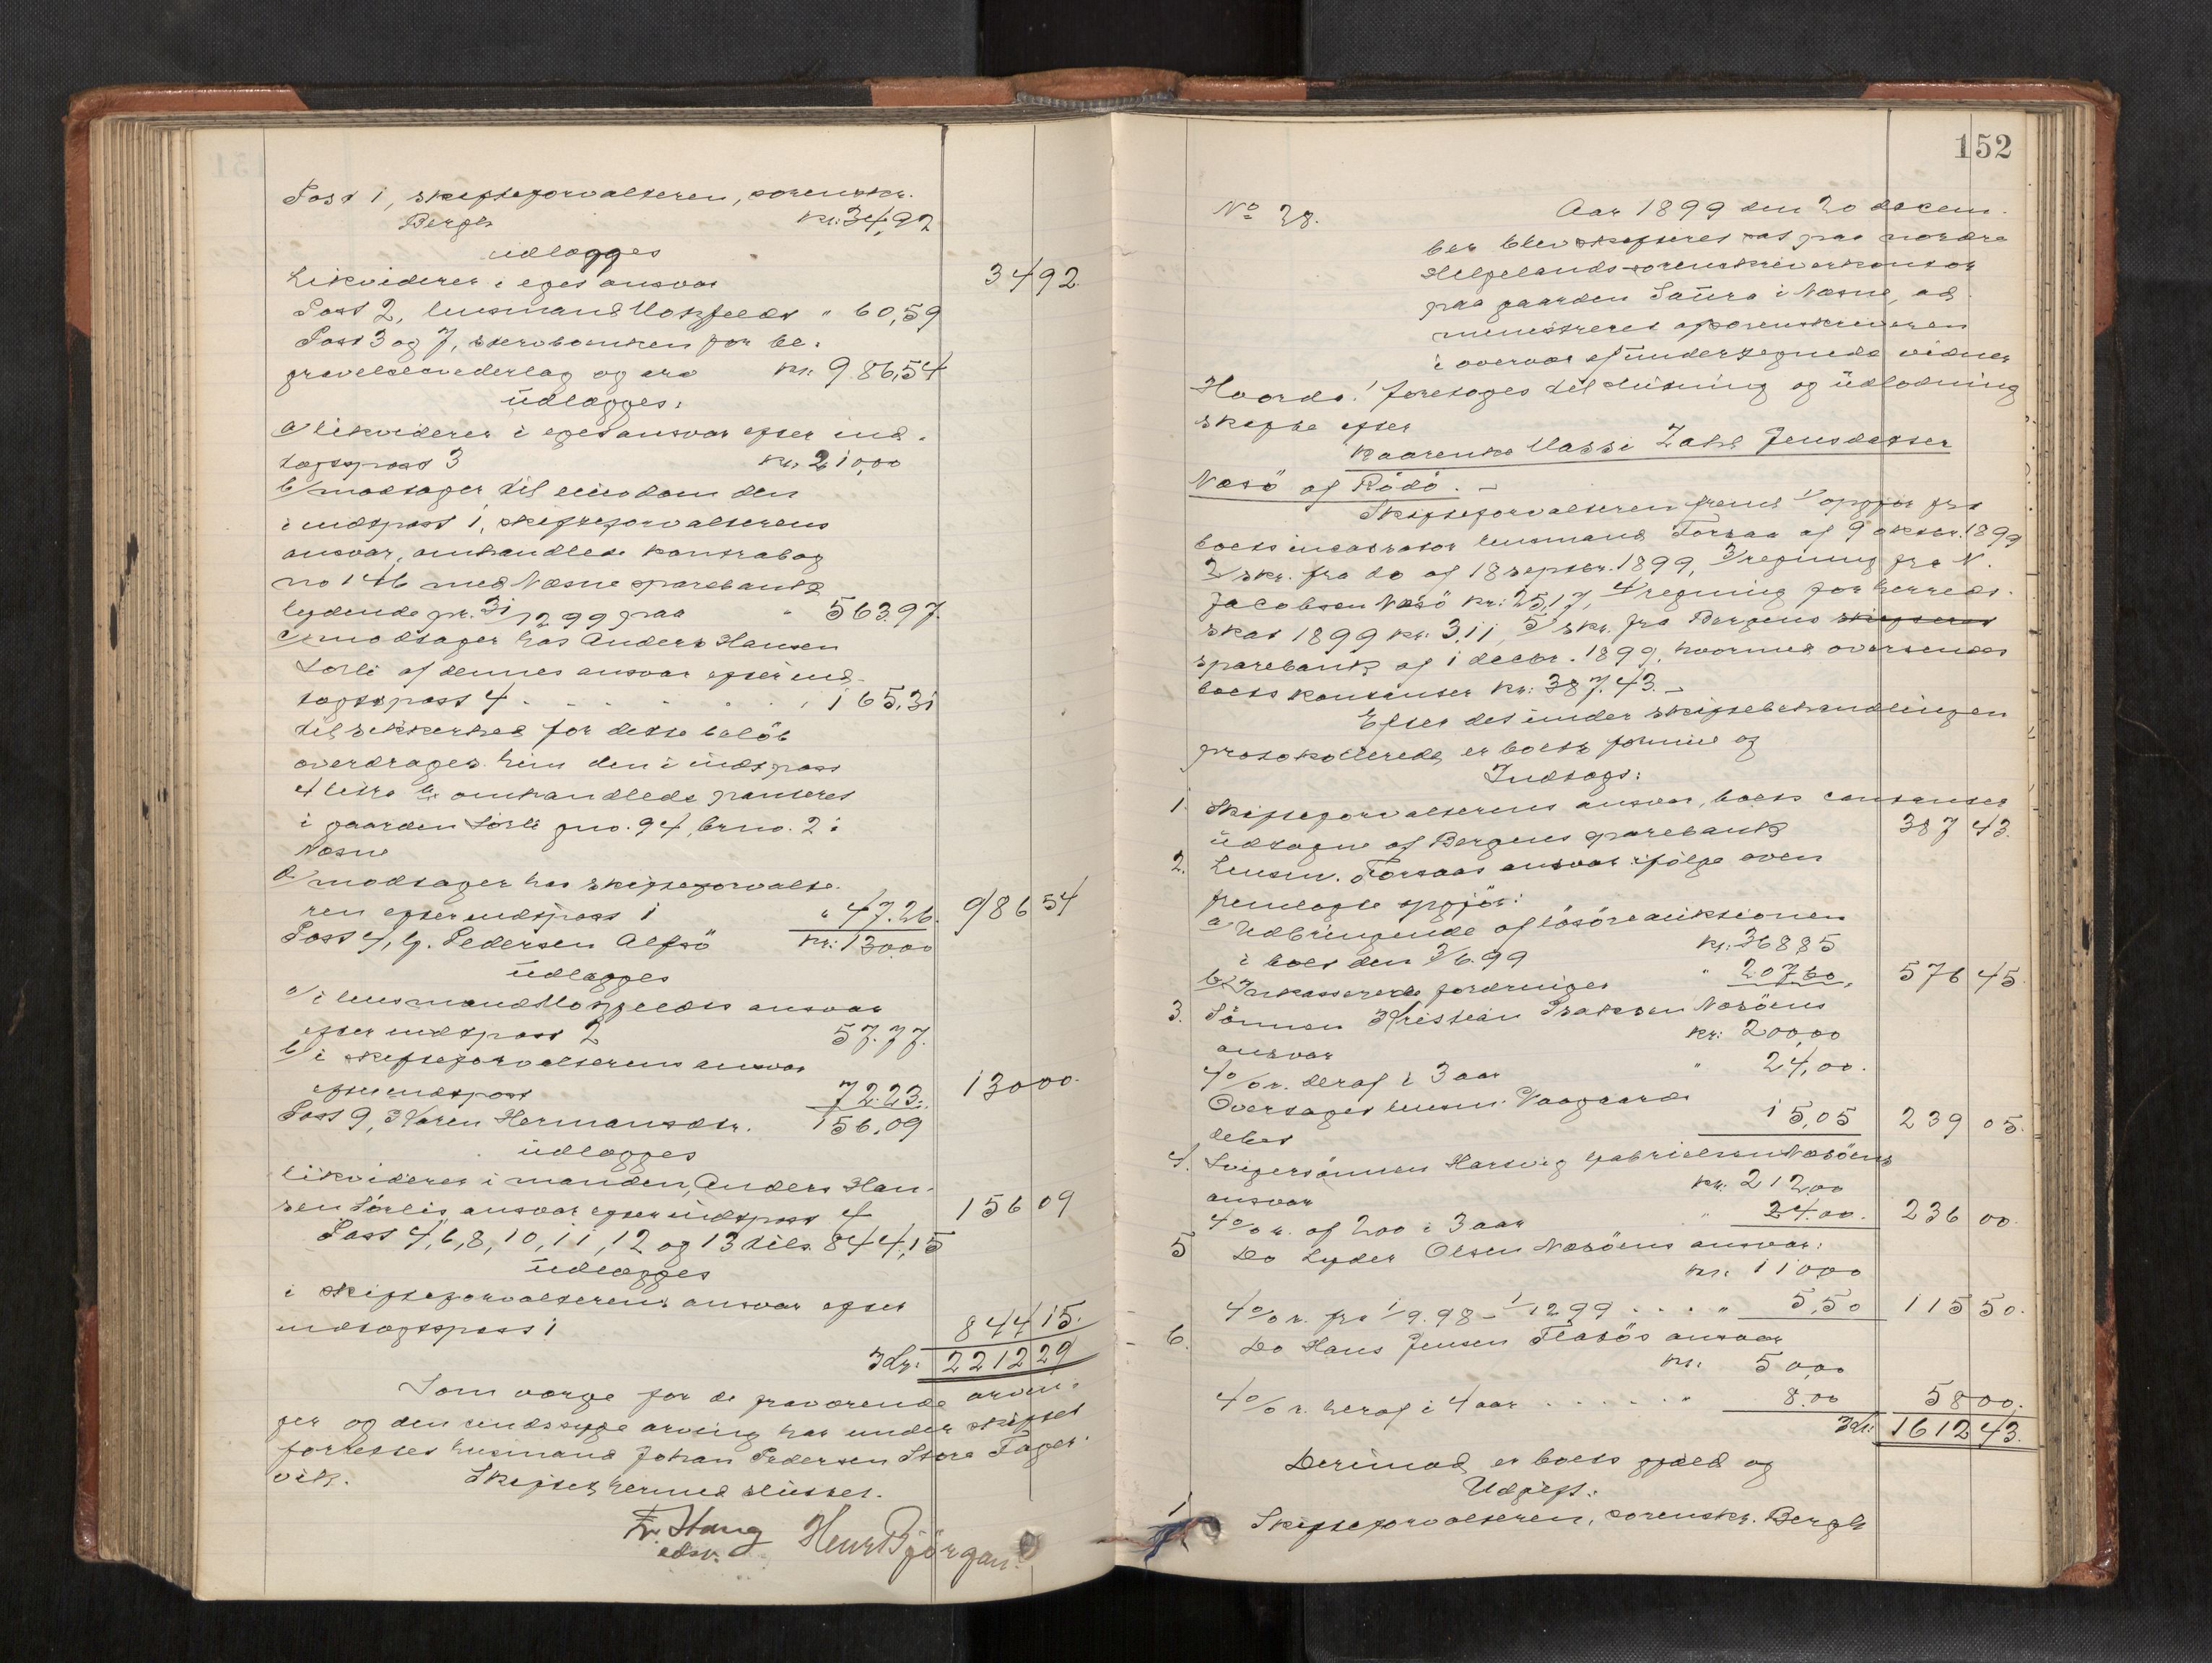 Post 1, skifteforvalteren, sorenskr.
Bergh kr: 34,92
udlægges
Likviderer i eget ansvar 34 92
Post 2, lensmand Motzfeldt " 60,59
Post 3 og 7, stervboenken for be-
gravelsesvederlag og arv kr: 986,54
udlægges:
a/ likviderer i eget ansvar efter ind-
tægtspost 3 kr: 210,00
b/ modtager til eiendom den
i indtpost 1, skifteforvalterens
ansvar, omhandlede kontrabog
no 146 med Næsne sparebank
lydende pr. 31/12 99 paa " 563.97.
c/ modtager hos Anders Hansen
Sørli af dennes ansvar efter ind-
tægtspost 4 . . . . . . 165,31
til sikkerhed for dette beløb
overdrages ham den i indtpost
4 litra a omhandlede panteret
i gaarden Sørli gno. 94, brno. 2 i
Næsne
d/ modtager hos skifteforvalte-
ren efter indtpost 1 " 47.26. 986 54
Post 4, G. Pedersen Alfsø kr: 130.00
udlægges
a/ i lensmand Motzfeldts ansvar
efter indtpost 2 57.77.
b/ i skifteforvalterens ansvar
efter indtpost 72.23. 130 00.
Post 9, Karen Hermansdtr. 156,09
udlægges
likvideres i manden, Anders Han-
sen Sørlis ansvar efter indtpost 4 156 09
Post 4, 6, 8, 10, 11, 12 og 13 tils. 844,15
udlægges
i skifteforvalterens ansvar efter
indtægtspost 1 844 15.
Tils: 2212 29
Som værge for de fraværende arvin-
ger og den sindssyge arving har under skiftet
forrettet husmand Johan Pedersen Store Tager-
vik. Skiftet hermed sluttet.
Fr. Stang Henr Bjørgan
edsv.
152
No 28. Aar 1899 den 20 decem-
ber blev skifteret sat paa nordre
Helgelands sorenskriverkontor
paa gaarden Saura i Næsne, ad-
ministreret af sorenskriveren
i overvær af undertegnede vidner
Hvorda! foretoges til slutning og udlodning
skifte efter
Kaarenka Massi Zahl Jensdatter
Næsø af Rødø. –
Skifteforvalteren freml 1/ opgjør fra
boets incassator lensmand Forsaa af 9 oktbr. 1899
2/ skr. fra do af 18 septbr. 1899, 3/ regning fra N.
Jacobsen Næsø kr: 25,17, 4/ regning for herreds-
skat 1899 kr. 3,11, 5/ skr. fra Bergens skifteret
sparebank af 1 decbr. 1899, hvormed oversendes
boets kontanter kr: 387.43. –
Efter det under skiftebehandlingen
protokollerede er boets formue og
Indtægt:
1. Skifteforvalterens ansvar, boets contanter
udtagne af Bergens sparebank 387 43.
2. Lensm. Forsaas ansvar ifølge oven
fremlagte opgjør:
a/ Udbringende af løsøreauktionen
i boet den 3/6.99 kr: 368 85
b/ Inkasserede fordringer " 207.60, 576 45
3. Sønnen Kristian Isaksen Næsøens
ansvar kr: 200,00
4% r. deraf i 3 aar " 24,00.
Overtaget lensm. Vaagaard
debet 15,05 239 05.
4. Svigersønnen Hartvig Gabrielsen Næsøens
ansvar kr. 212.00
4% r. af 200 i 3 aar " 24.00. 236 00.
5 Do Lyder Olsen Næsøens ansvar:
kr. 110,00
4% r. fra 1/9.98 – 1/12 99 . . . . " 5,50 115 50.
6. Do Hans Jensen Flatøs ansvar
kr: 50,00
4% r. heraf i 4 aar . . . . . . " 8.00 58 00.
Tils: 1612 43.
Derimod er boets gjæld og
Udgift:
1/ Skifteforvalteren, sorenskr. Bergh